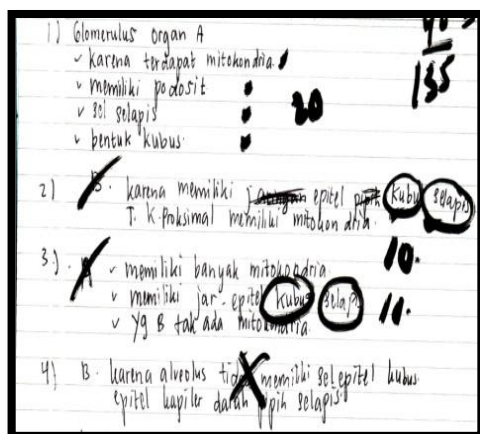 1) Glomerulus organ A
✓ karena terdapat mitokondria
✓ memiliki podosit
✓ sel selapis
✓ bentuk kubus
20
135
2) B. karena memiliki jaringan epitel pipih kubus selapis
T. K. Proksimal memiliki mitokondria.
10.
3.) A ✓ memiliki banyak mitokondria
✓ memiliki jar. epitel kubus selapis
✓ yg B tak ada mitokondria.
10.
4) B. karena alveolus tidak memiliki sel epitel kubus
epitel kapiler darah pipih selapis.